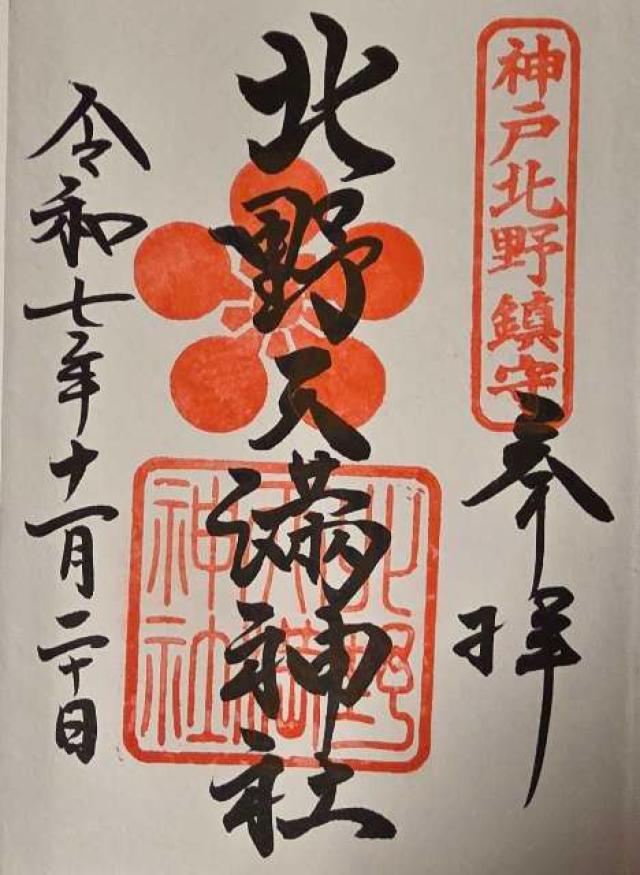 神戸北野鎮守
奉拝
北野天満神社
北野
天満
神社
令和七年十一月二十日